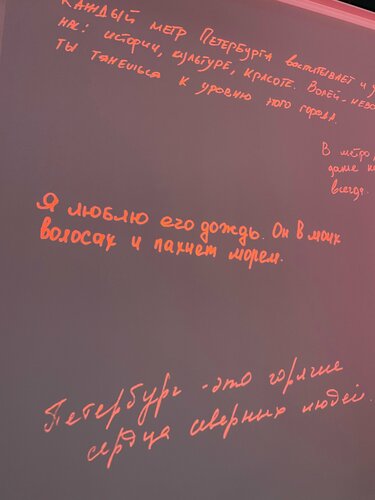 Каждый метр Петербурга воспитывает и
нас: истории, культуре, красоте. Волей-нево
ты тянешься к уровню этого города.
В метро
даже
всегда.
Я люблю его дождь. Он в моих
волосах и пахнет морем.
Петербург - это горячие
сердца северных людей.